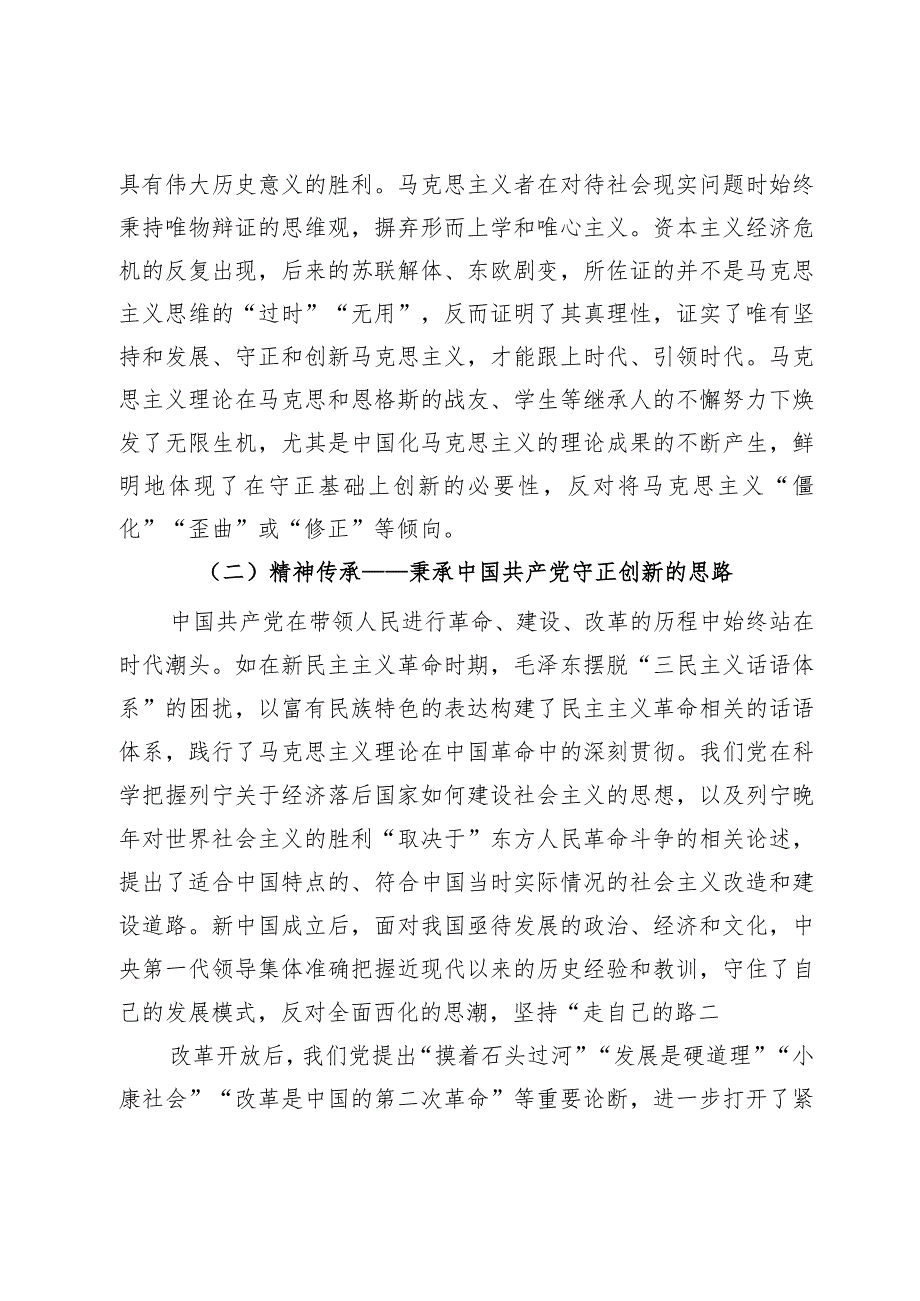 具有伟大历史意义的胜利。马克思主义者在对待社会现实问题时始终
秉持唯物辩证的思维观，摒弃形而上学和唯心主义。资本主义经济危
机的反复出现，后来的苏联解体、东欧剧变，所佐证的并不是马克思
主义思维的“过时”“无用”，反而证明了其真理性，证实了唯有坚
持和发展、守正和创新马克思主义，才能跟上时代、引领时代。马克
思主义理论在马克思和恩格斯的战友、学生等继承人的不懈努力下焕
发了无限生机，尤其是中国化马克思主义的理论成果的不断产生，鲜
明地体现了在守正基础上创新的必要性，反对将马克思主义“僵
化”“歪曲”或“修正”等倾向。
（二）精神传承——秉承中国共产党守正创新的思路
中国共产党在带领人民进行革命、建设、改革的历程中始终站在
时代潮头。如在新民主主义革命时期，毛泽东摆脱“三民主义话语体
系”的困扰，以富有民族特色的表达构建了民主主义革命相关的话语
体系，践行了马克思主义理论在中国革命中的深刻贯彻。我们党在科
学把握列宁关于经济落后国家如何建设社会主义的思想，以及列宁晚
年对世界社会主义的胜利“取决于”东方人民革命斗争的相关论述，
提出了适合中国特点的、符合中国当时实际情况的社会主义改造和建
设道路。新中国成立后，面对我国亟待发展的政治、经济和文化，中
央第一代领导集体准确把握近现代以来的历史经验和教训，守住了自
己的发展模式，反对全面西化的思潮，坚持“走自己的路二
改革开放后，我们党提出“摸着石头过河”“发展是硬道理”“小
康社会”“改革是中国的第二次革命”等重要论断，进一步打开了紧